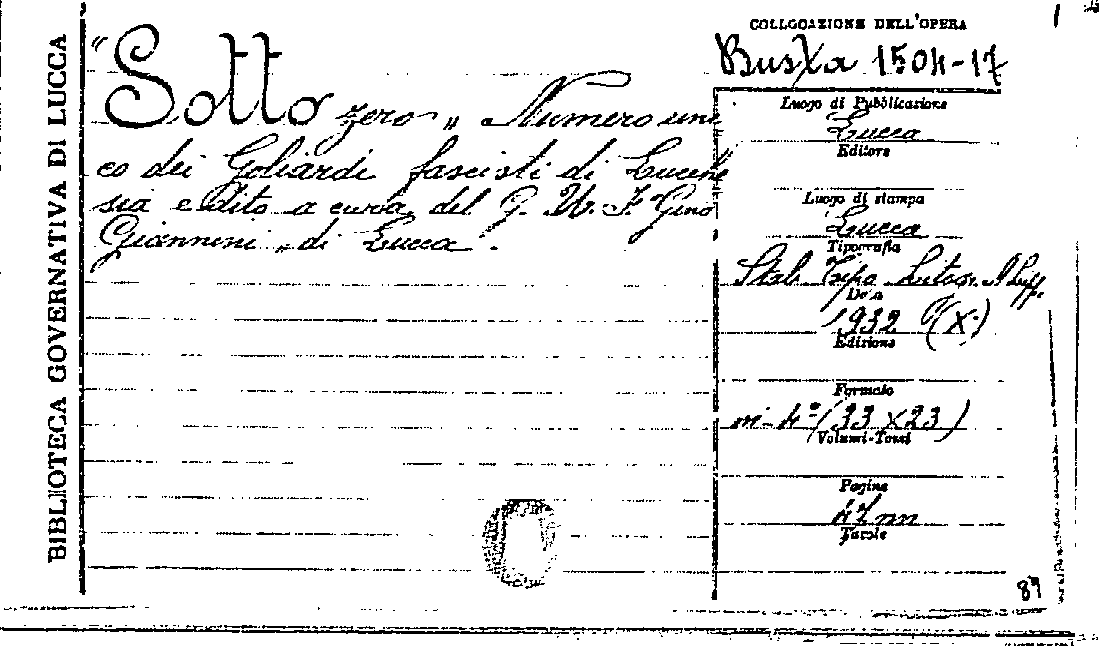 BIBLIOTECA GOVERNATIVA DI LUCCA
"Sotto zero" Numero uni
co dei Goliardi fascisti di Lucche
sia edito a cura del G. U. F. "Gino
Giannini" di Lucca.
COLLOCAZIONE DELL'OPERA
Busta 1504-17
Luogo di Pubblicazione
Lucca
Editore
Luogo di stampa
Lucca
Tipografia
Stab. Tipo Litogr.
Data
1932 (X.)
Edizione
Formato
in-4º (33 x 23)
Volumi-Tomi
Pagine
47 nn
Tavole
89